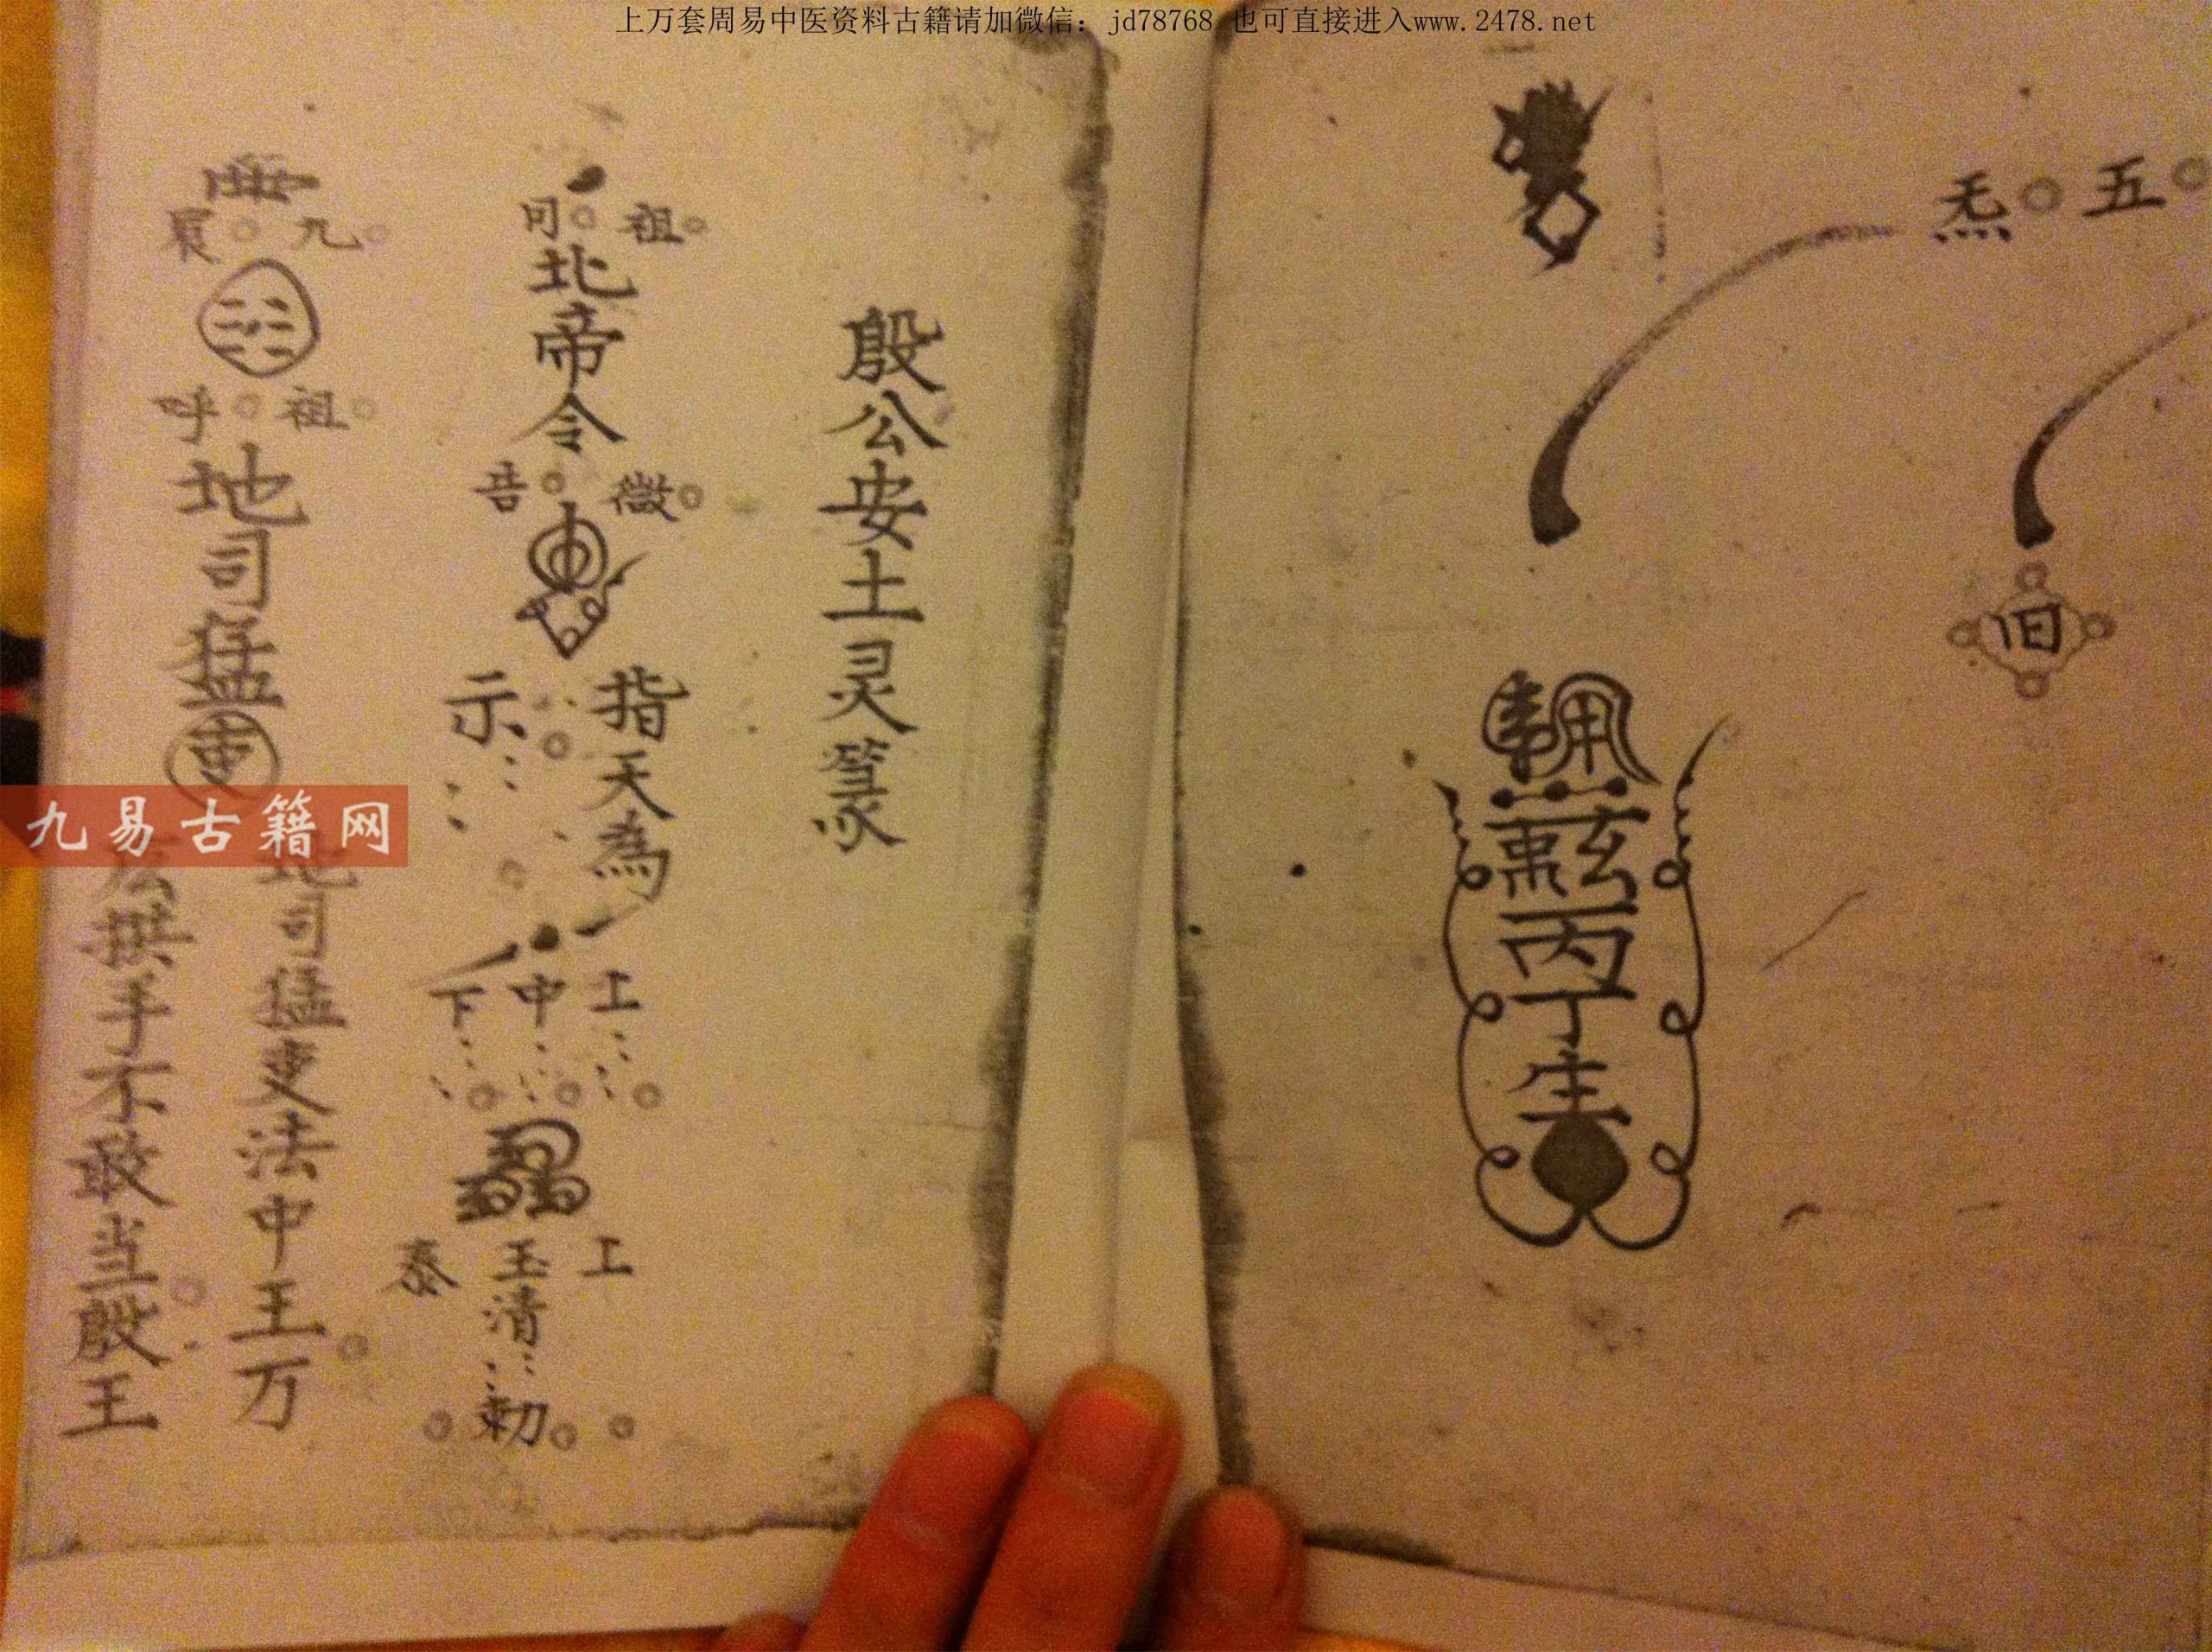 上万套周易中医资料古籍请加微信：jd78768 也可直接进入www.2478.net
五炁
旧
玄
丙丁生
殷公安土灵篆
祖
司
北帝令
微
吾
指天為
示
上
中
下
上
玉清
泰
勅
九
宸
祖
呼
地司猛吏
地司猛吏法中王万
手不敢当殷王
九易古籍网